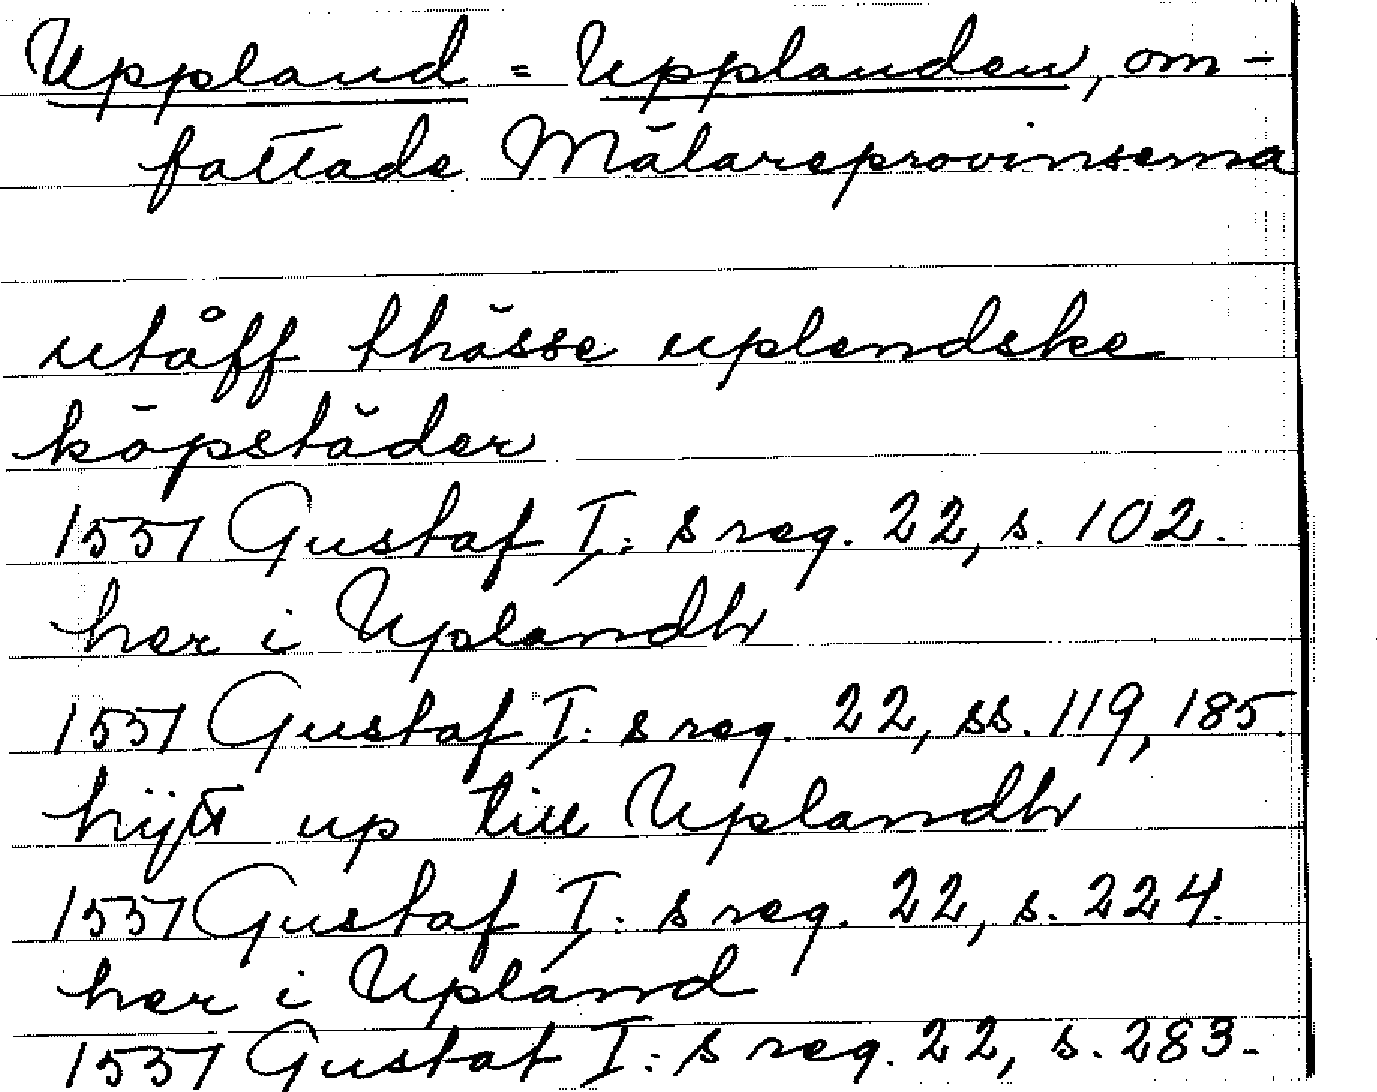 Uppland = Upplanden, om-
fattade Mälareprovinserna
utåff thässe uplendske
köpstäder
1557 Gustaf I: s reg. 22, s. 102.
her i Uplandh
1557 Gustaf I: s reg. 22, ss. 119, 185.
hijtt up till Uplandh
1557 Gustaf I: s reg. 22, s. 224.
her i Upland
1557 Gustaf I: s reg. 22, s. 283.